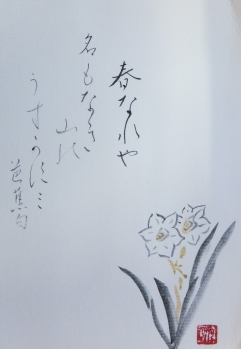 春なれや
名もなき
山の
うすがすミ
芭蕉句